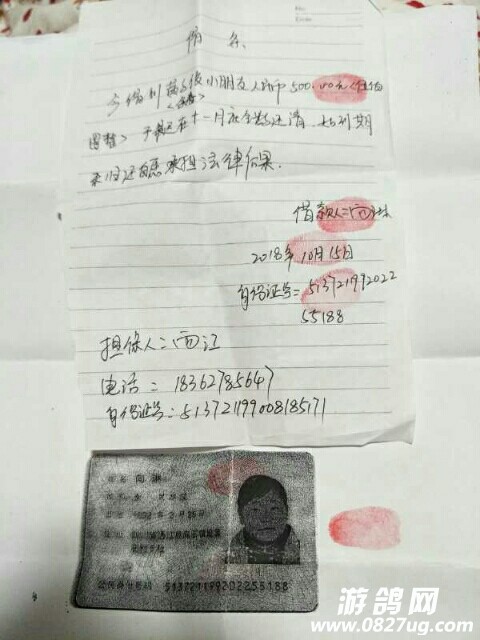 借条
今借到 小朋友人民币500.00元
圆整> 在十一月底全数还清 如到期
未归还自愿承担法律后果.
借款人:向
2018年10月15日
身份证号:513721992022
55188
担保人:向江
电话:18362785647
身份证号:513721199008185171
姓名 向
公民身份号码 513721199202255188
游鸽网
www.0827ug.com